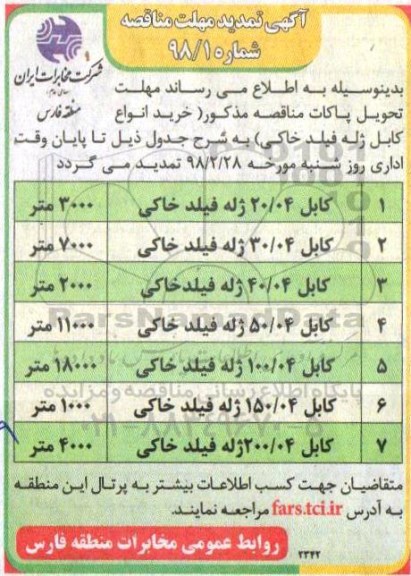 آگهی تمدید مهلت مناقصه
شماره ۹۸/۱
شرکت مخابرات ایران
(سهامی عام)
منطقه فارس
بدینوسیله به اطلاع می رساند مهلت
تحویل پاکات مناقصه مذکور( خرید انواع
کابل ژله فیلد خاکی) به شرح جدول ذیل تا پایان وقت
اداری روز شنبه مورخه ۹۸/۲/۲۸ تمدید می گردد
۱ کابل ۲۰/۰۴ ژله فیلد خاکی ۳۰۰۰ متر
۲ کابل ۳۰/۰۴ ژله فیلد خاکی ۷۰۰۰ متر
۳ کابل ۴۰/۰۴ ژله فیلدخاکی ۲۰۰۰ متر
۴ کابل ۵۰/۰۴ ژله فیلد خاکی ۱۱۰۰۰ متر
۵ کابل ۱۰۰/۰۴ ژله فیلد خاکی ۱۸۰۰۰ متر
۶ کابل ۱۵۰/۰۴ ژله فیلد خاکی ۱۰۰۰ متر
۷ کابل ۲۰۰/۰۴ژله فیلد خاکی ۴۰۰۰ متر
ParsNamadData
پایگاه اطلاع رسانی مناقصه و مزایده
۰۲۱-۸۸۳۴۹۶۷۰-۵
متقاضیان جهت کسب اطلاعات بیشتر به پرتال این منطقه
به آدرس fars.tci.ir مراجعه نمایند.
روابط عمومی مخابرات منطقه فارس
۲۳۴۲